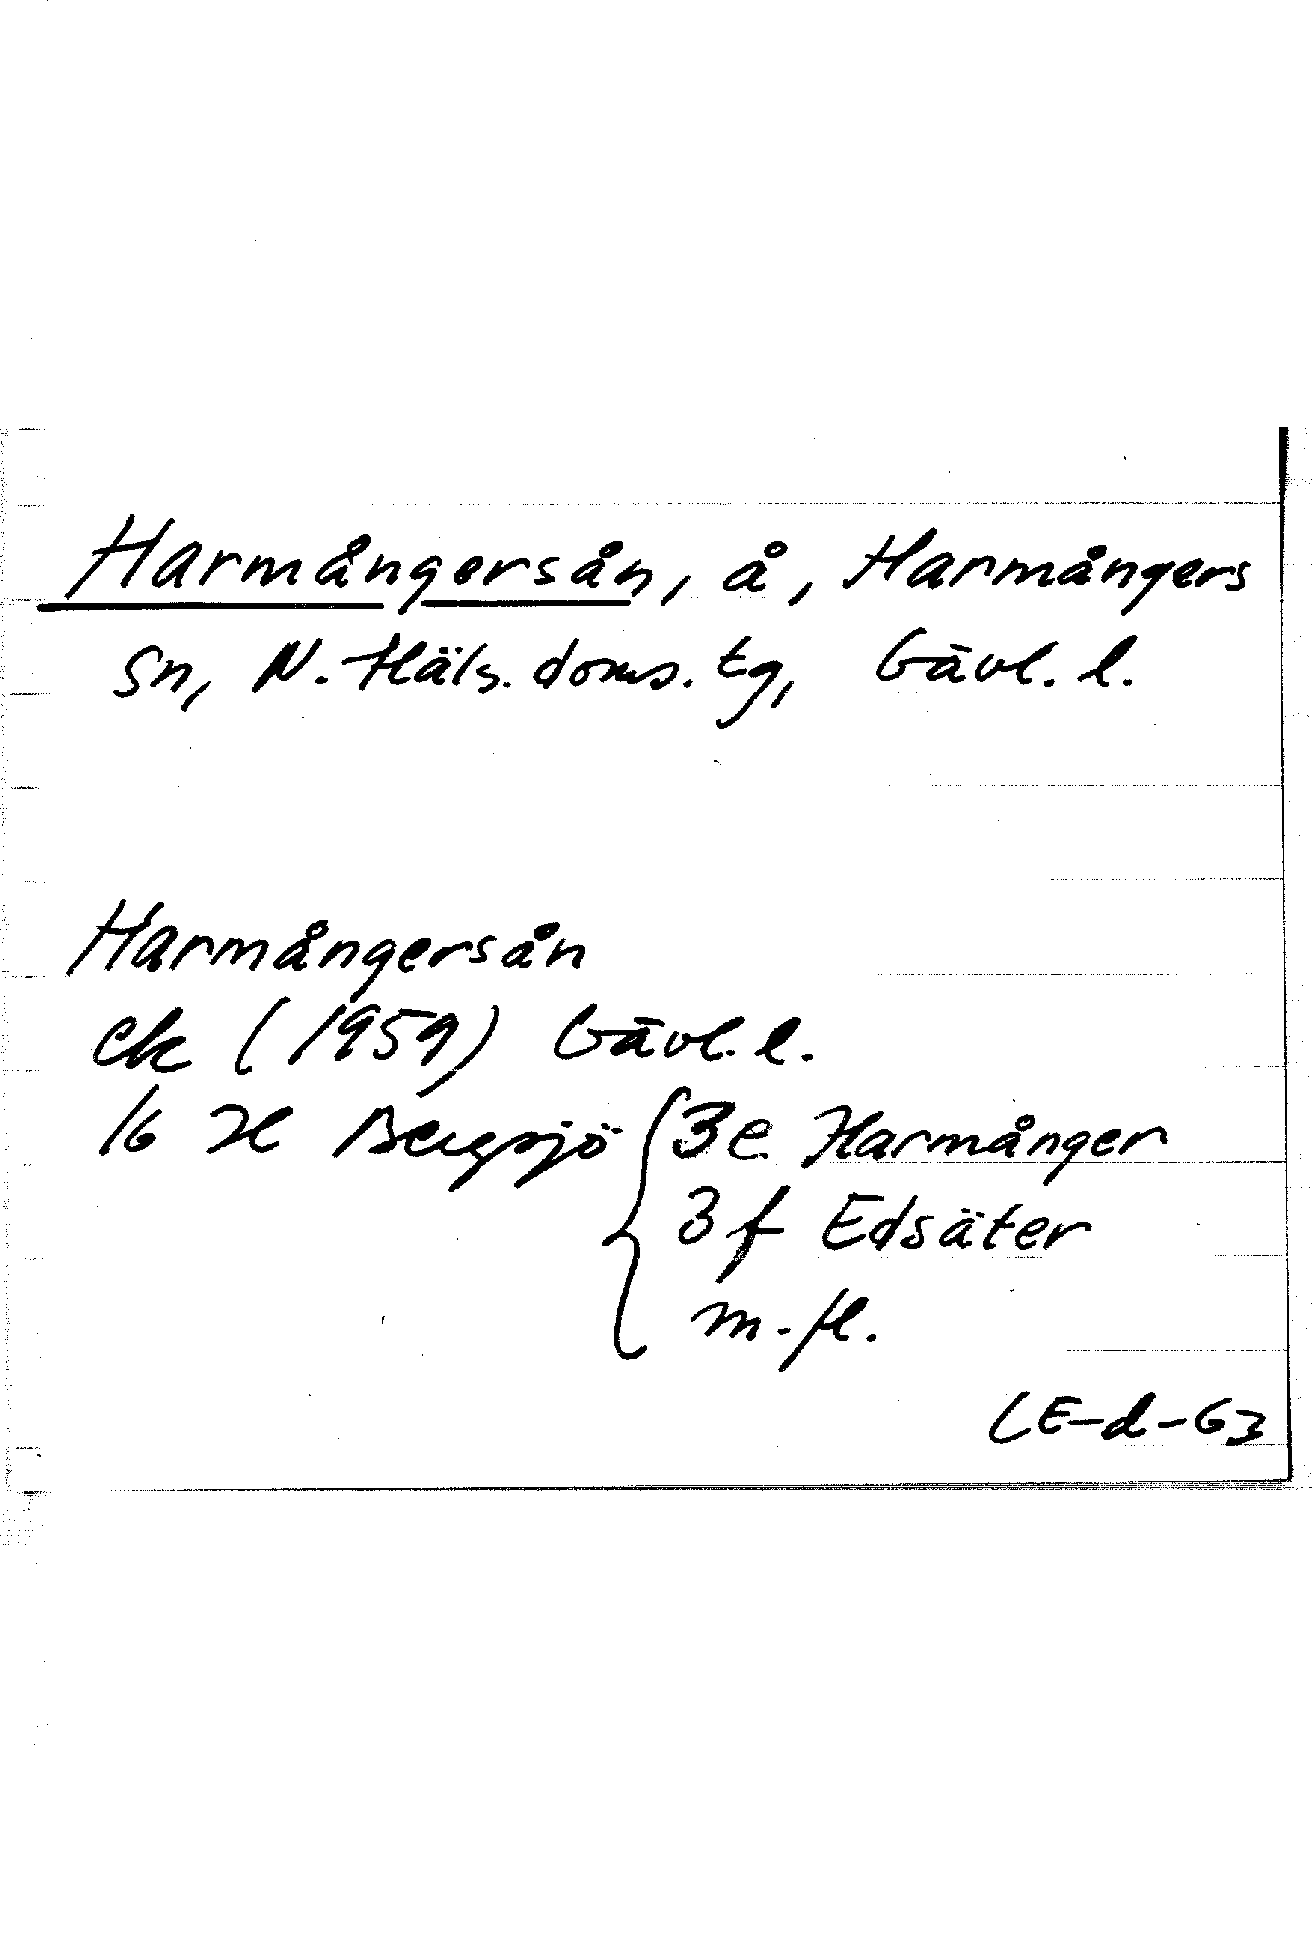 Harmångersån, å, Harmångers
sn, N. Häls. doms. tg, Gävl. l.
Harmångersån
ek (1959) Gävl. l.
16 H Bergsjö { 3e Harmånger
3f Edsäter
m. fl.
LE-d-63